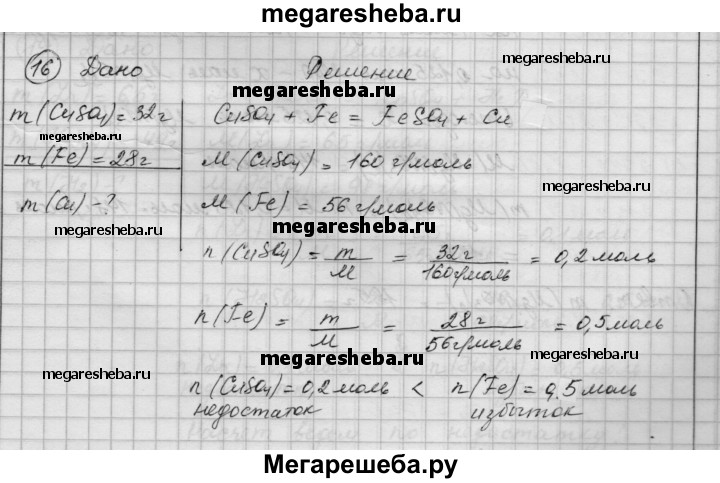 megaresheba.ru
16 Дано Решение
megaresheba.ru
m (CuSO4) = 32г CuSO4 + Fe = FeSO4 + Cu
megaresheba.ru
m (Fe) = 28г M (CuSO4) = 160 г/моль
megaresheba.ru
m (Cu) - ? M (Fe) = 56 г/моль
megaresheba.ru
n (CuSO4) = m/M = 32г/160г/моль = 0,2 моль
megaresheba.ru
n (Fe) = m/M = 28г/56г/моль = 0,5 моль
megaresheba.ru
megaresheba.ru
n (CuSO4) = 0,2 моль < n (Fe) = 0,5 моль
недостаток избыток
megaresheba.ru
Мегарешеба.ру